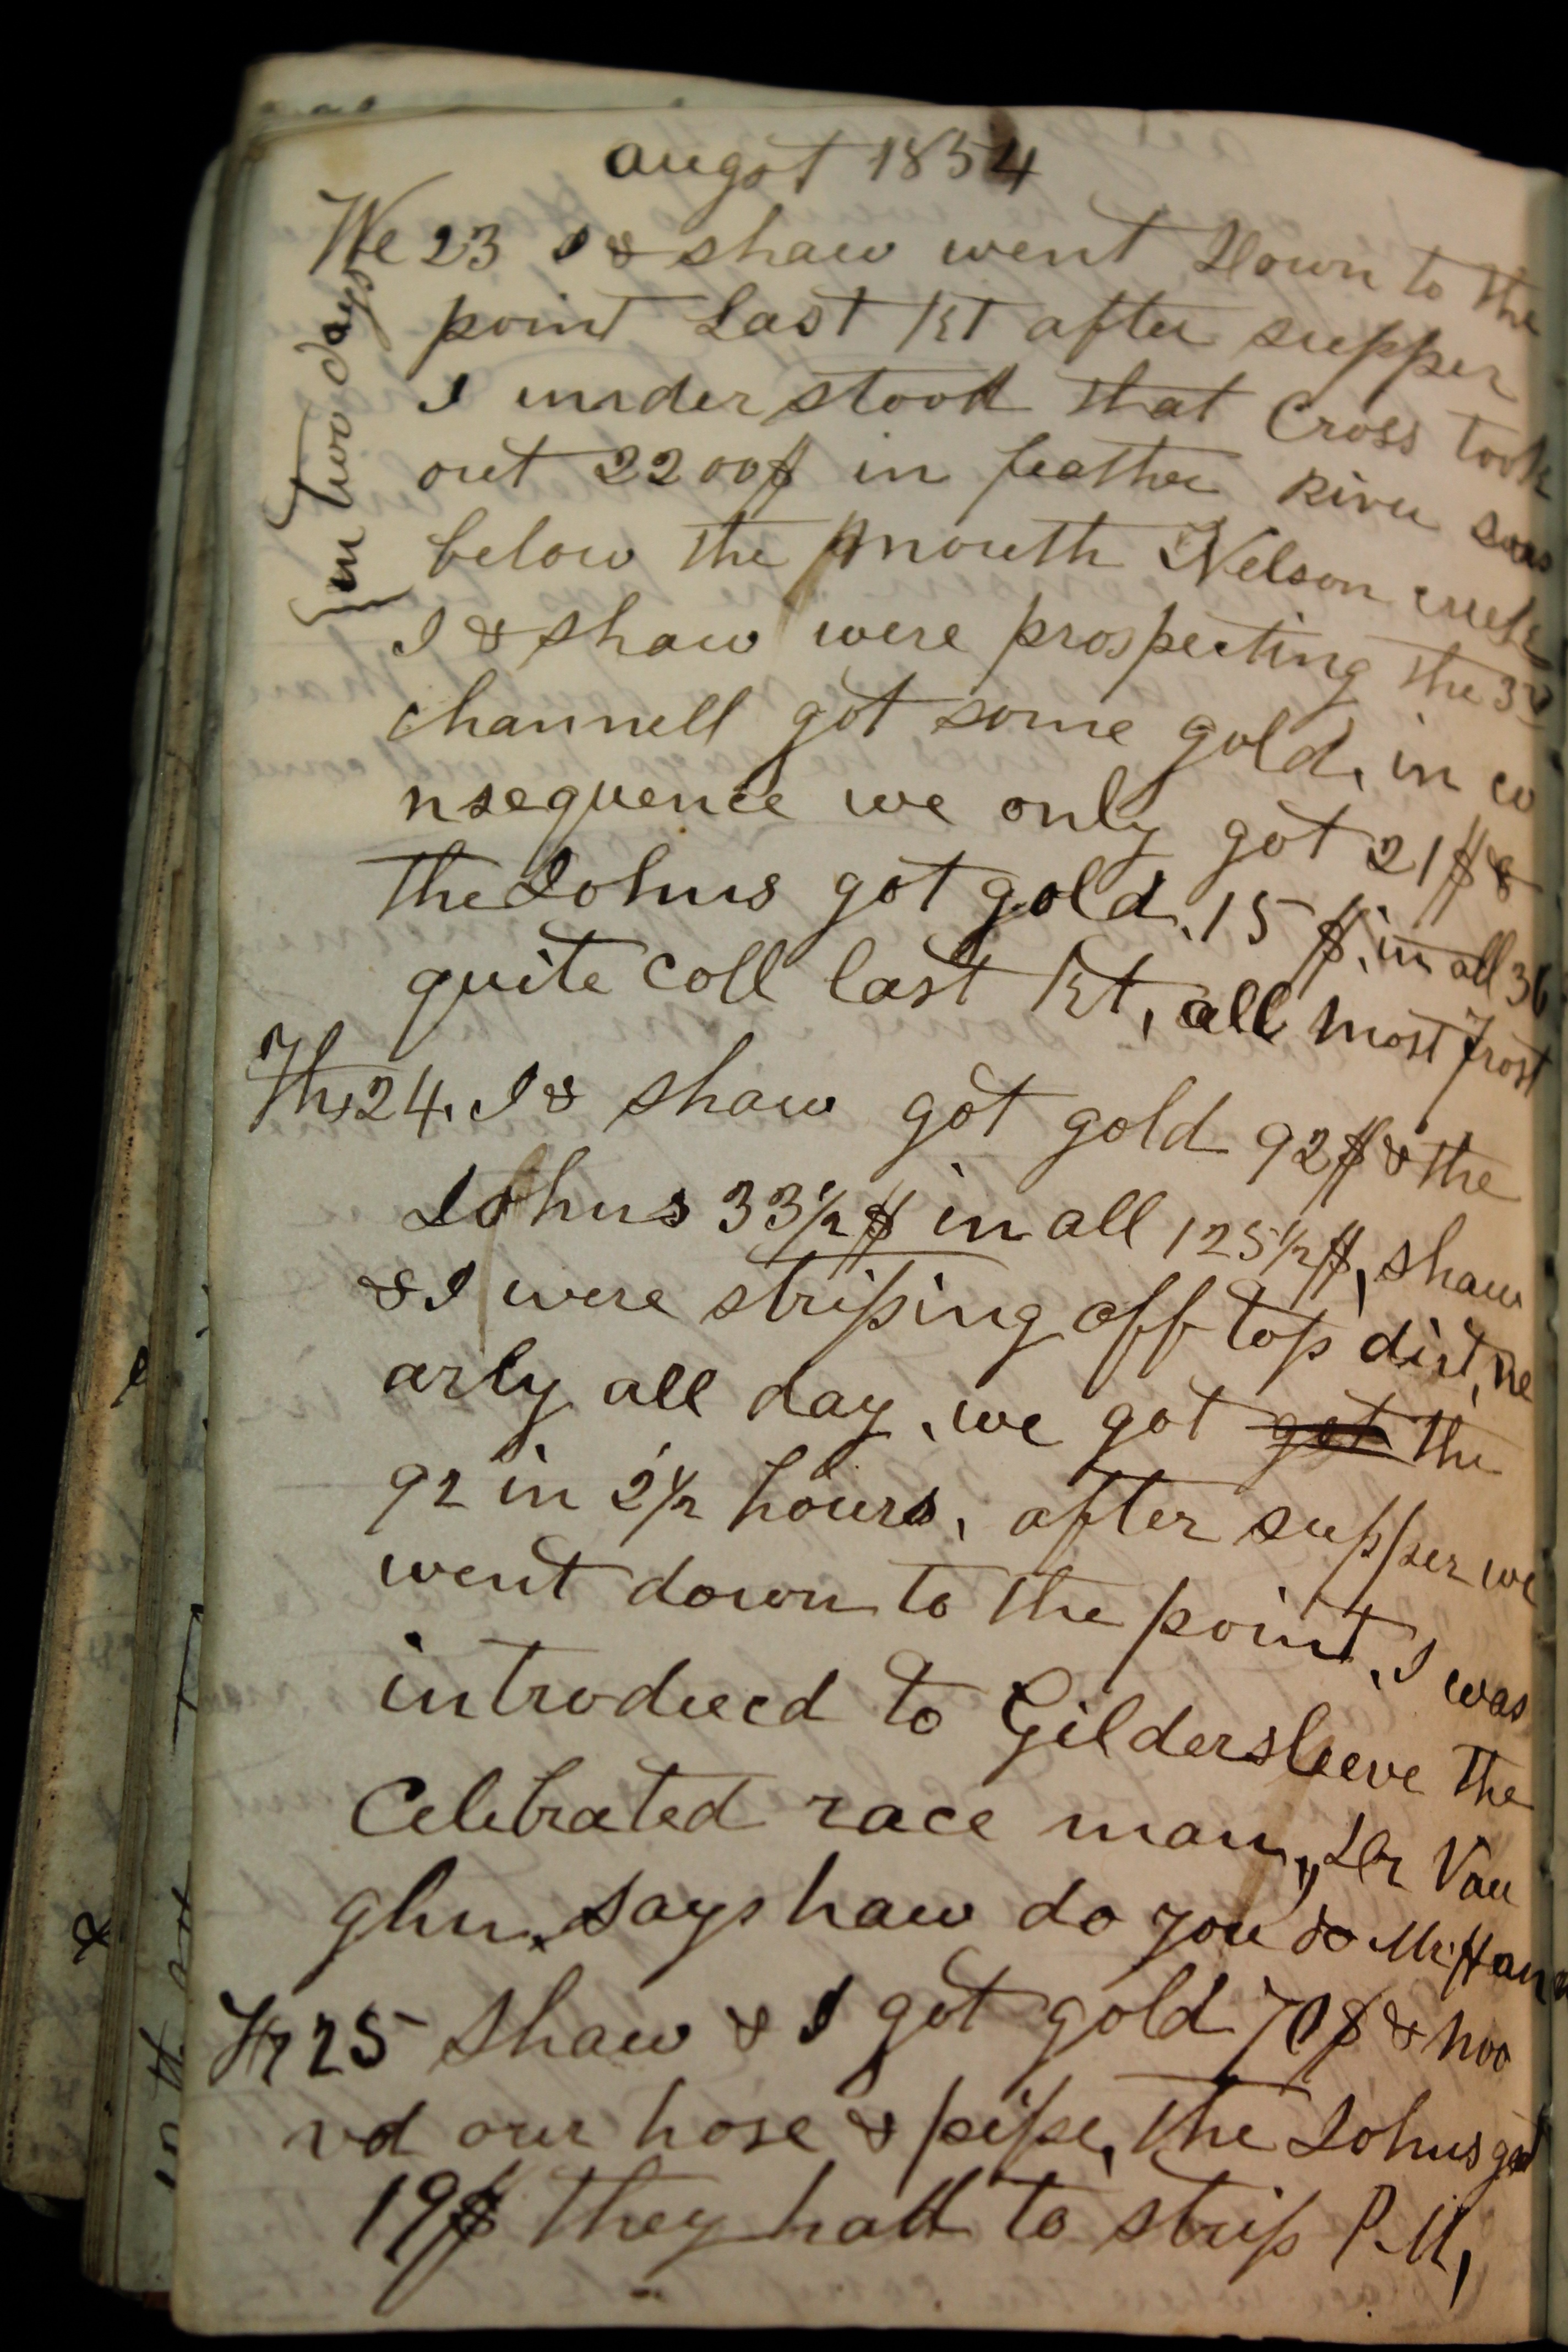 augot 1854
We 23 I & shaw went Down to the
point Last Kt after supper
I under stood that Cross took
out 2200$ in feather River
below the mouth Nelson creek
{in two days
I & shaw were prospecting the 3rd
channell got some gold, in co
nsequence we only got 21$ &
the Johns got gold, 15 $, in all 36
quite coll last Kt, all most frost
Th 24, I & shaw got gold 92$ & the
Johns 33 1/2 $ in all 125 1/2 $, shaw
& I were striping off top dirt, ne
arly all day, we got got the
92 in 2 1/2 hours, after supper we
went down to the point, I was
introdueed to Gildersleeve the
Celebrated race man, Dr Vau
ghn, says haw do you do Mr
Fr 25 Shaw & I got gold 70$ & moo
vd our hose & pipe, the Johns got
19$ they hatt to strip P.M,